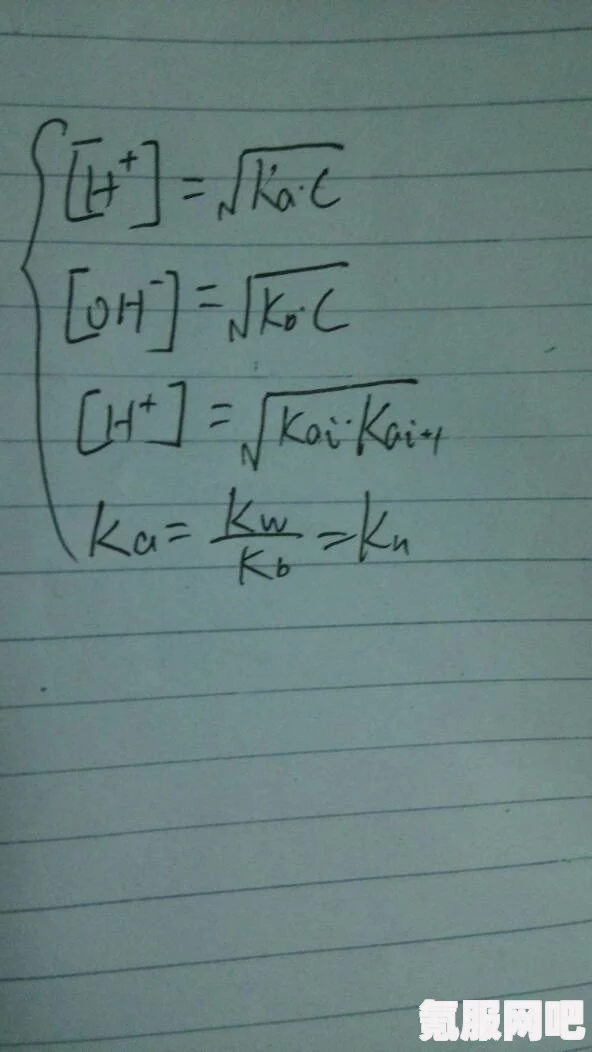 [H⁺] = √Ka·C
[OH⁻] = √Kb·C
[H⁺] = √Kai·Kai+1
Ka = Kw/Kb = Kh
氪服网吧